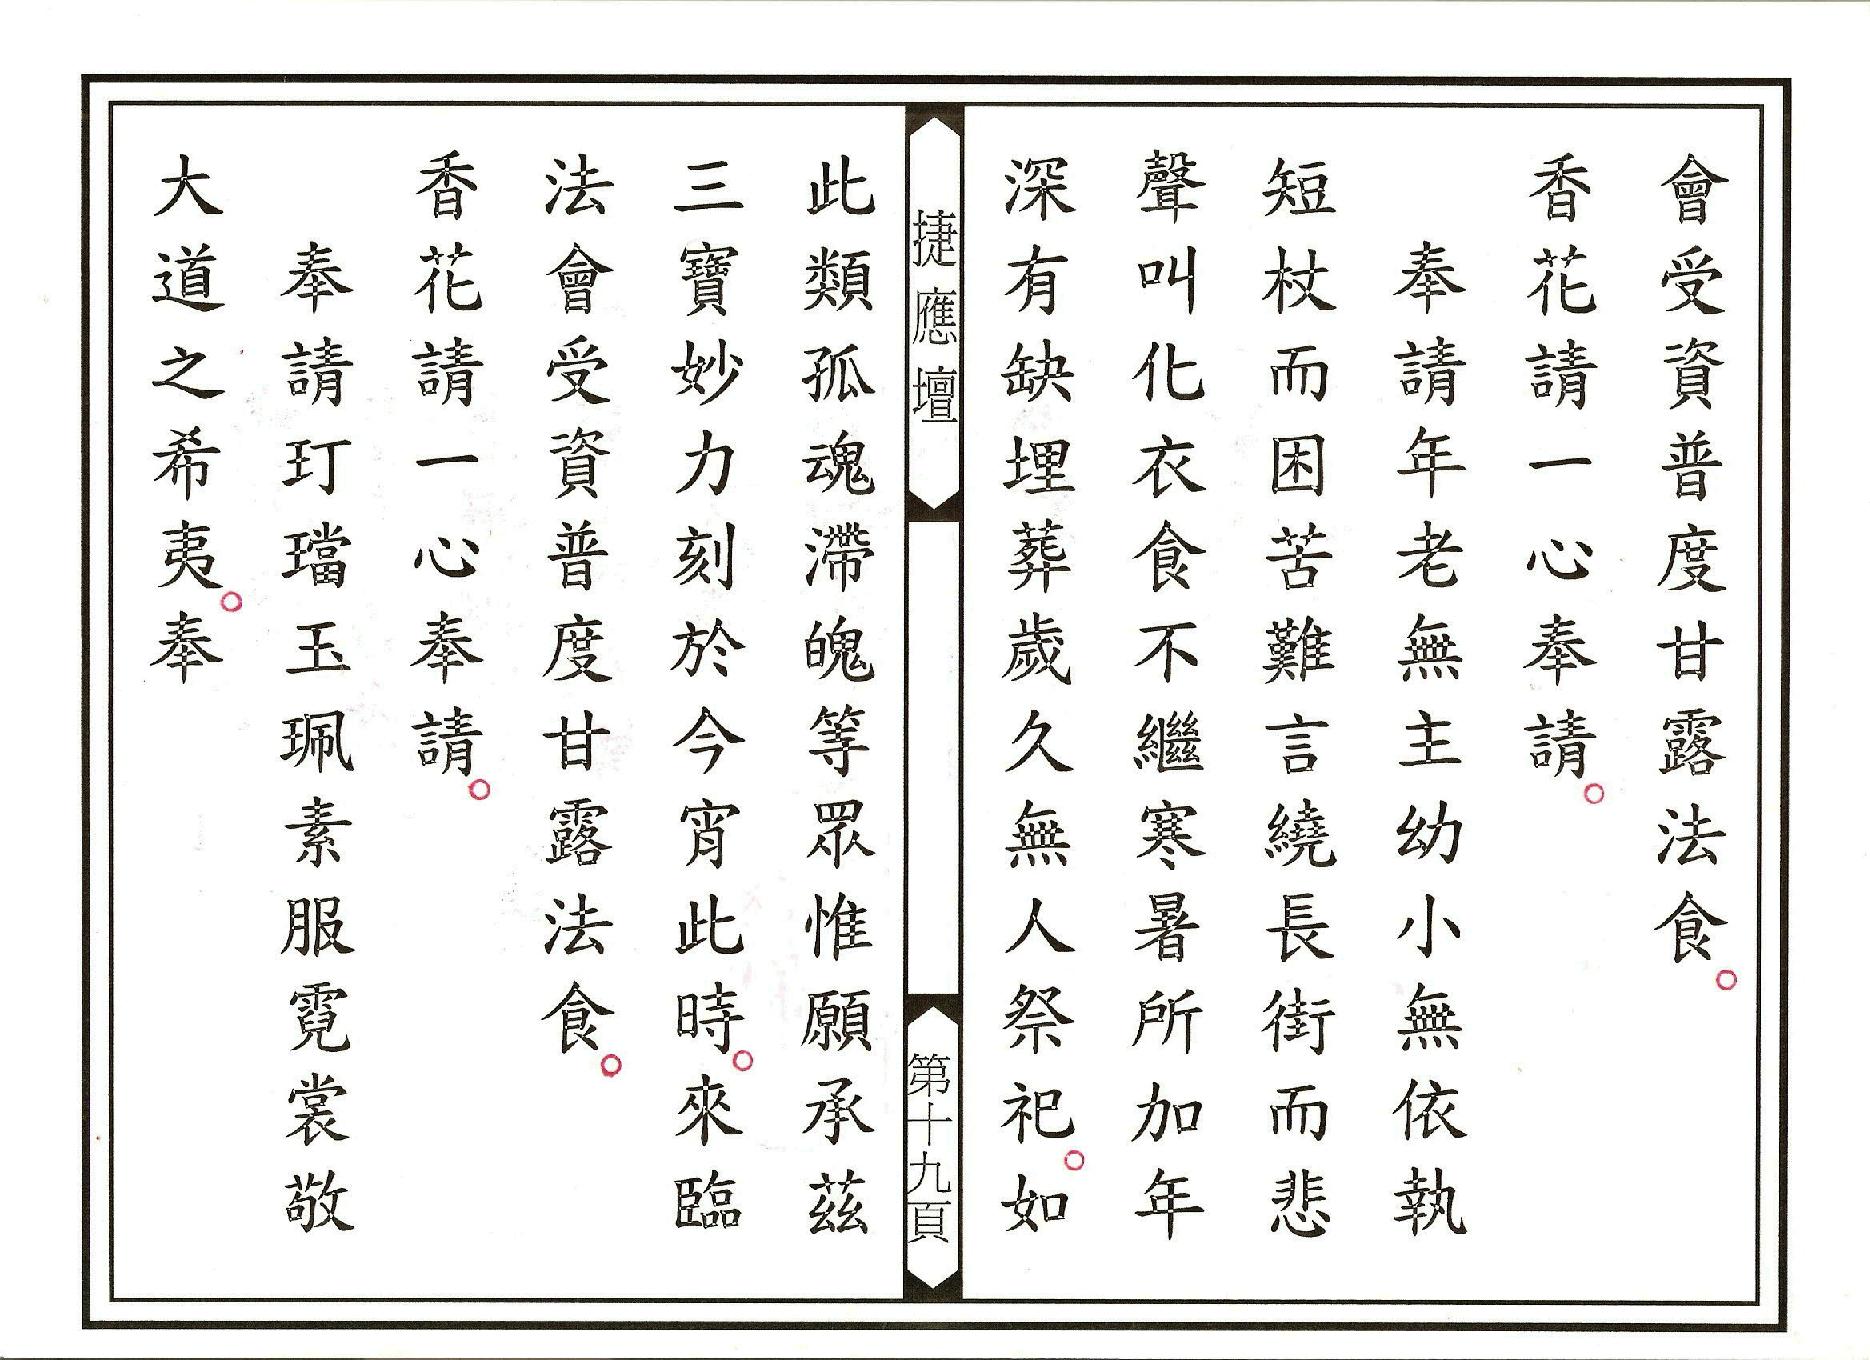 會受資普度甘露法食。
香花請一心奉請。
奉請年老無主幼小無依執
短杖而困苦難言繞長街而悲
聲叫化衣食不繼寒暑所加年
深有缺埋葬歲久無人祭祀。如
捷應壇
第十九頁
此類孤魂滯魄等眾惟願承茲
三寶妙力刻於今宵此時。來臨
法會受資普度甘露法食。
香花請一心奉請。
奉請玎璫玉珮素服霓裳敬
大道之希夷。奉